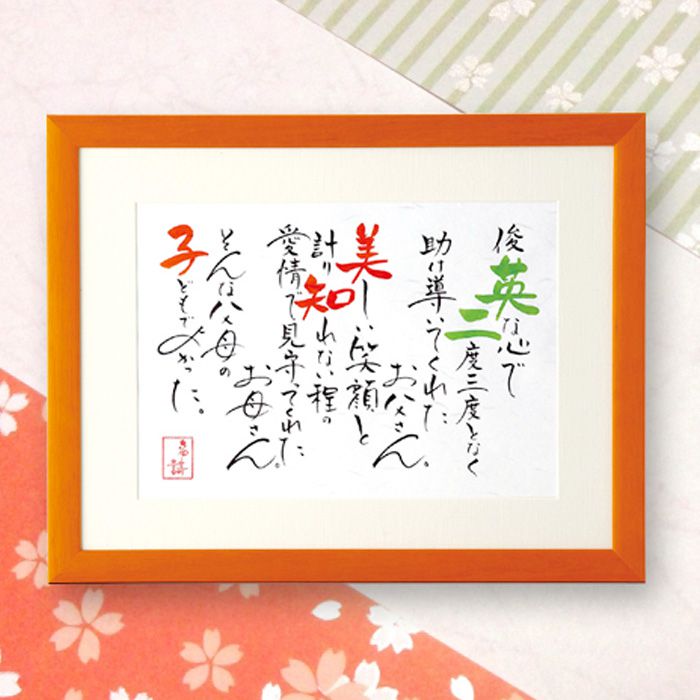 俊英な心で
二度三度となく
助け導いてくれた
お父さん。
美しい笑顔と
計り知れない程の
愛情で見守ってくれた
お母さん。
そんな父母の
子どもでよかった。